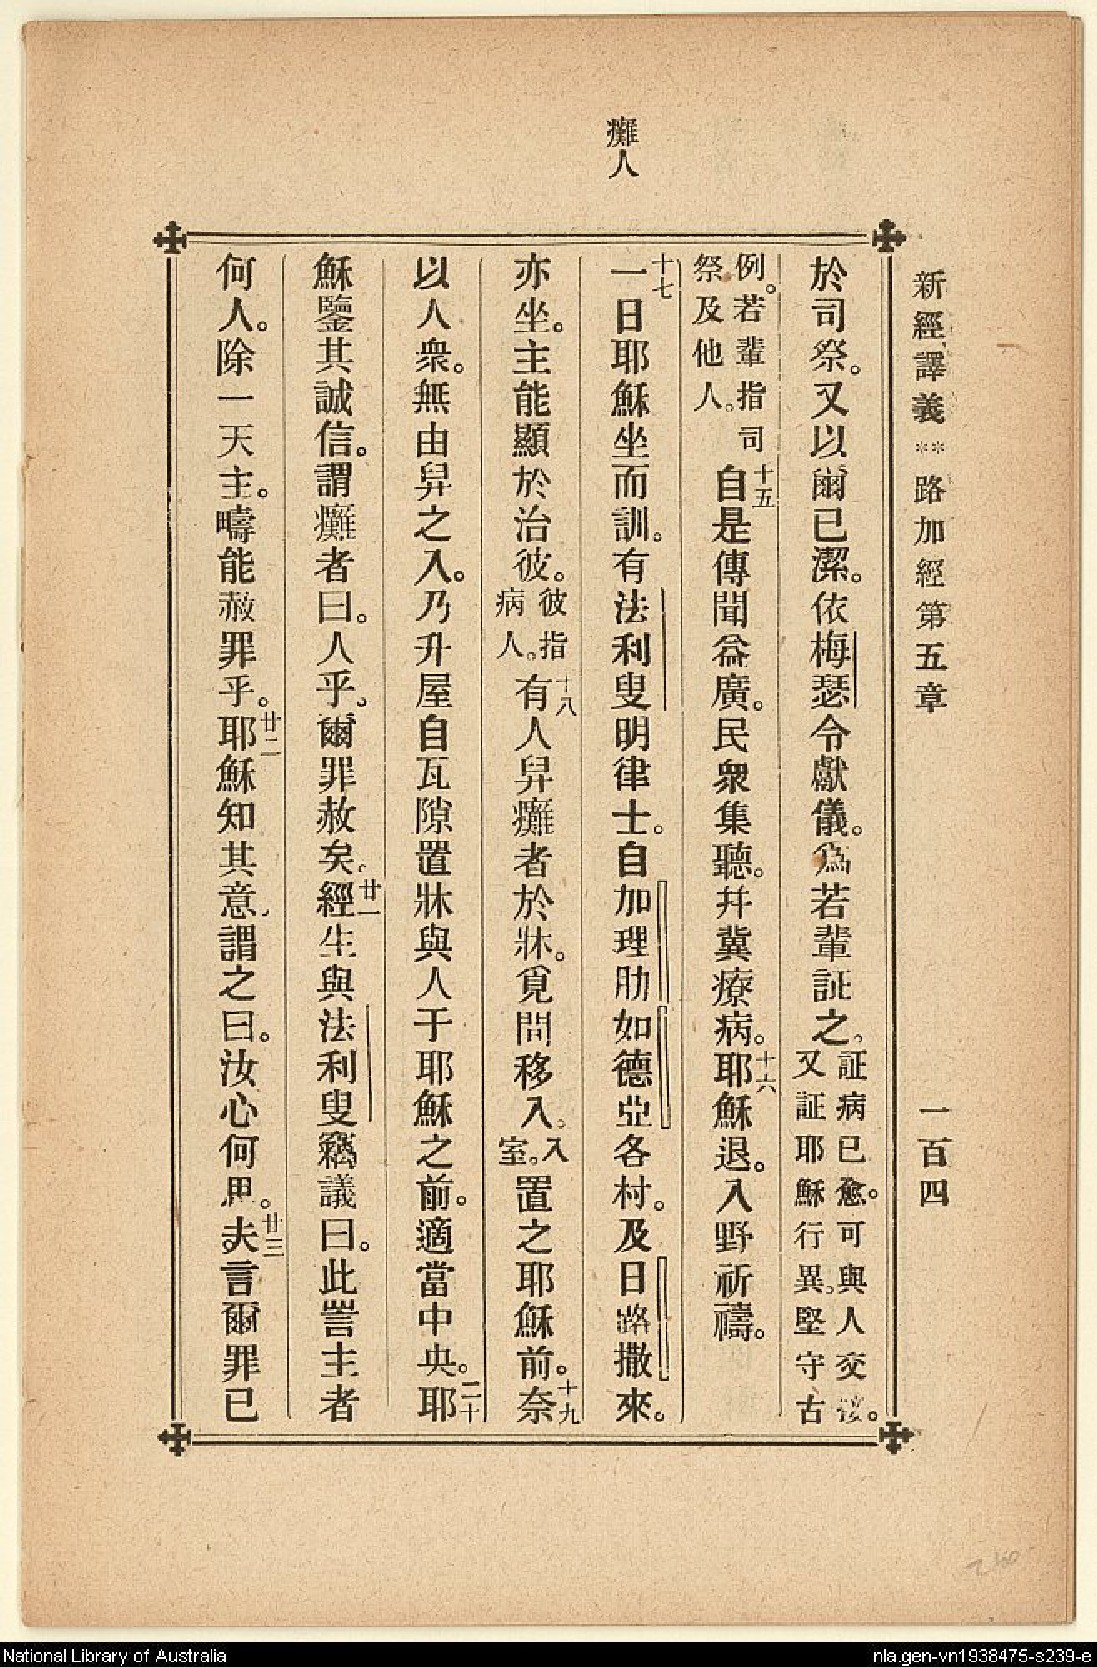 新經譯義 ** 路加經第五章 一百四
於司祭。又以爾已潔。依梅瑟令獻儀。爲若輩証之。証病已愈。可與人交接。又証耶穌行異。堅守古
例。若輩指司祭及他人。十五自是傳聞益廣。民衆集聽。幷冀療病。十六耶穌退。入野祈禱。
癱人
十七一日耶穌坐而訓。有法利叟明律士。自加理肋如德亞各村。及日路撒來。
亦坐。主能顯於治彼。彼指病人。十八有人舁癱者於牀。覓間移入。入室。置之耶穌前。十九奈
以人衆。無由舁之入。乃升屋自瓦隙置牀與人于耶穌之前。適當中央。二十耶
穌鑒其誠信。謂癱者曰。人乎。爾罪赦矣。廿一經生與法利叟竊議曰。此詈主者
何人。除一天主。疇能赦罪乎。廿二耶穌知其意。謂之曰。汝心何思。廿三夫言爾罪已
National Library of Australia
nla.gen-vn1938475-s239-e